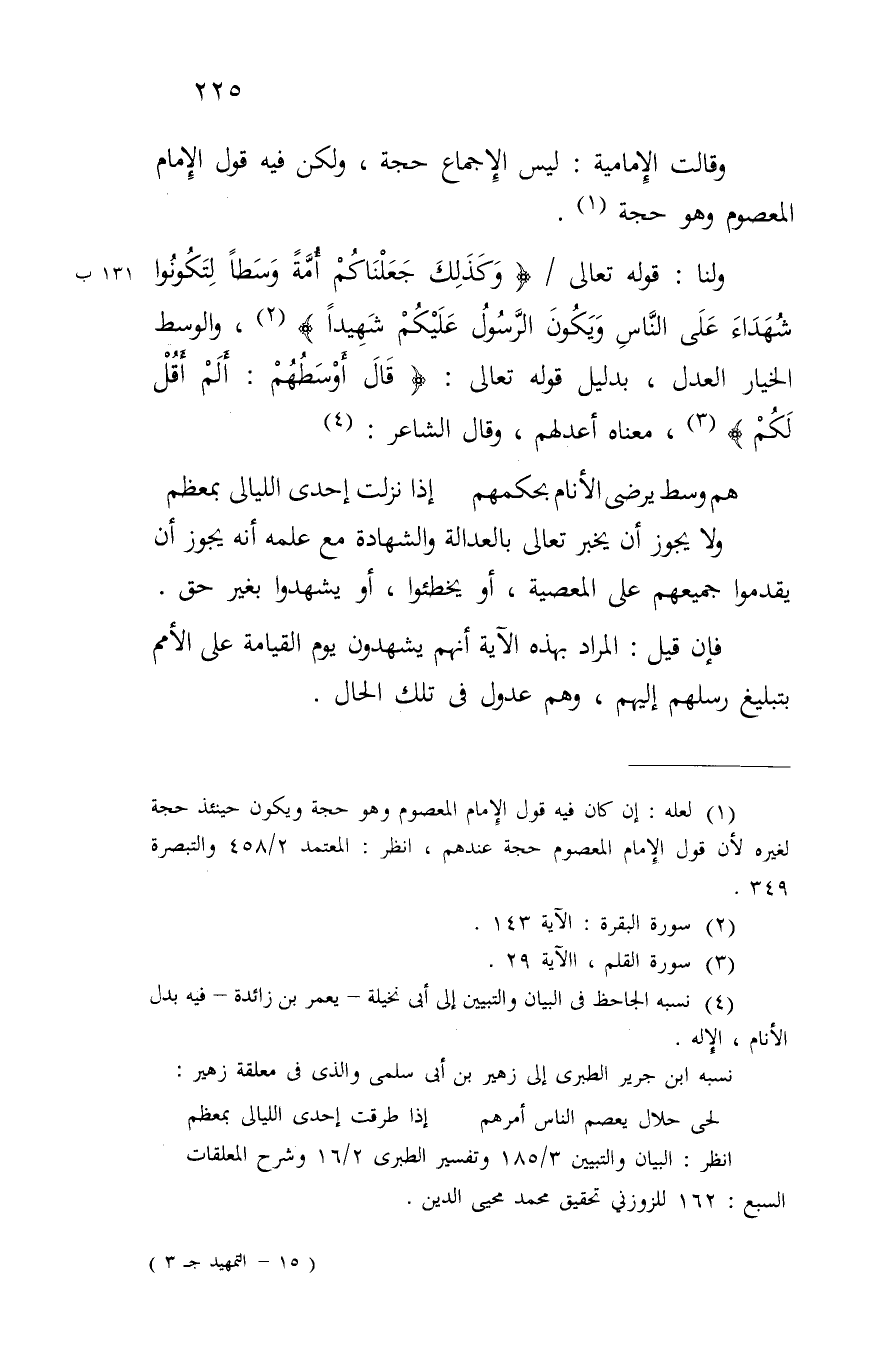 ٢٢٥
وقالت الإمامية : ليس الإجماع حجة ، ولكن فيه قول الإمام
المعصوم وهو حجة (١) .
ولنا : قوله تعالى / ﴿ وَكَذَلِكَ جَعَلْنَاكُمْ أُمَّةً وَسَطاً لِتَكُونُوا ١٣١ ب
شُهَدَاءَ عَلَى النَّاسِ وَيَكُونَ الرَّسُولُ عَلَيْكُمْ شَهِيداً ﴾ (٢) ، والوسط
الخيار العدل ، بدليل قوله تعالى : ﴿ قَالَ أَوْسَطُهُمْ : أَلَمْ أَقُلْ
لَكُمْ ﴾ (٣) ، معناه أعدلهم ، وقال الشاعر : (٤)
هم وسط يرضى الأنام بحكمهم إذا نزلت إحدى الليالى بمعظم
ولا يجوز أن يخبر تعالى بالعدالة والشهادة مع علمه أنه يجوز أن
يقدموا جميعهم على المعصية ، أو يخطئوا ، أو يشهدوا بغير حق .
فإن قيل : المراد بهذه الآية أنهم يشهدون يوم القيامة على الأمم
بتبليغ رسلهم إليهم ، وهم عدول فى تلك الحال .
(١) لعله : إن كان فيه قول الإمام المعصوم وهو حجة ويكون حينئذ حجة
لغيره لأن قول الإمام المعصوم حجة عندهم ، انظر : المعتمد ٤٥٨/٢ والتبصرة
٣٤٩ .
(٢) سورة البقرة : الآية ١٤٣ .
(٣) سورة القلم ، االآية ٢٩ .
(٤) نسبه الجاحظ فى البيان والتبيين إلى أبى نخيلة – يعمر بن زائدة – فيه بدل
الأنام ، الإله .
نسبه ابن جرير الطبرى إلى زهير بن أبى سلمى والذى فى معلقة زهير :
لحى حلال يعصم الناس أمرهم إذا طرقت إحدى الليالى بمعظم
انظر : البيان والتبيين ١٨٥/٣ وتفسير الطبرى ١٦/٢ وشرح المعلقات
السبع : ١٦٢ للزوزني تحقيق محمد محيى الدين .
( ١٥ – التمهيد جـ ٣ )